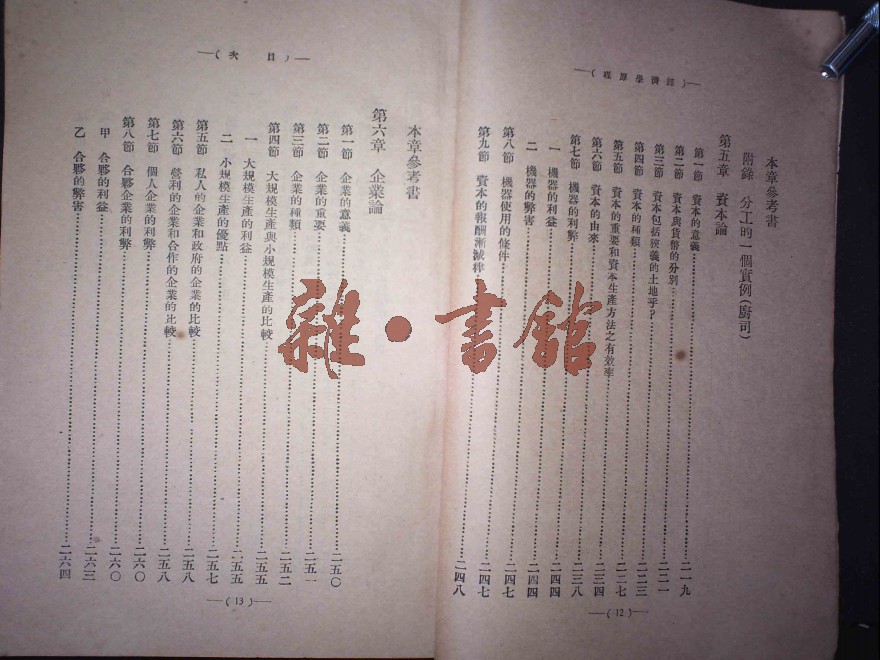 —(經濟學原理)—
本章參考書
附錄 分工的一個實例(廚司)
第五章 資本論
第一節 資本的意義……二一九
第二節 資本與貨幣的分別……二二一
第三節 資本包括狹義的土地乎?……二二三
第四節 資本的種類……二二七
第五節 資本的重要和資本生產方法之有效率……二三四
第六節 資本的由來……二三八
第七節 機器的利弊……二四四
一 機器的利益……二四四
二 機器的弊害……二四七
第八節 機器使用的條件……二四七
第九節 資本的報酬漸減律……二四八
—(12)—
—(目次)—
本章參考書
第六章 企業論
第一節 企業的意義……二五〇
第二節 企業的重要……二五一
第三節 企業的種類……二五二
第四節 大規模生產與小規模生產的比較……二五五
一 大規模生產的利益……二五五
二 小規模生產的優點……二五七
第五節 私人的企業和政府的企業的比較……二五八
第六節 營利的企業和合作的企業的比較……二五八
第七節 個人企業的利弊……二六〇
第八節 合夥企業的利弊……二六〇
甲 合夥的利益……二六三
乙 合夥的弊害……二六四
—(13)—
雜·書館